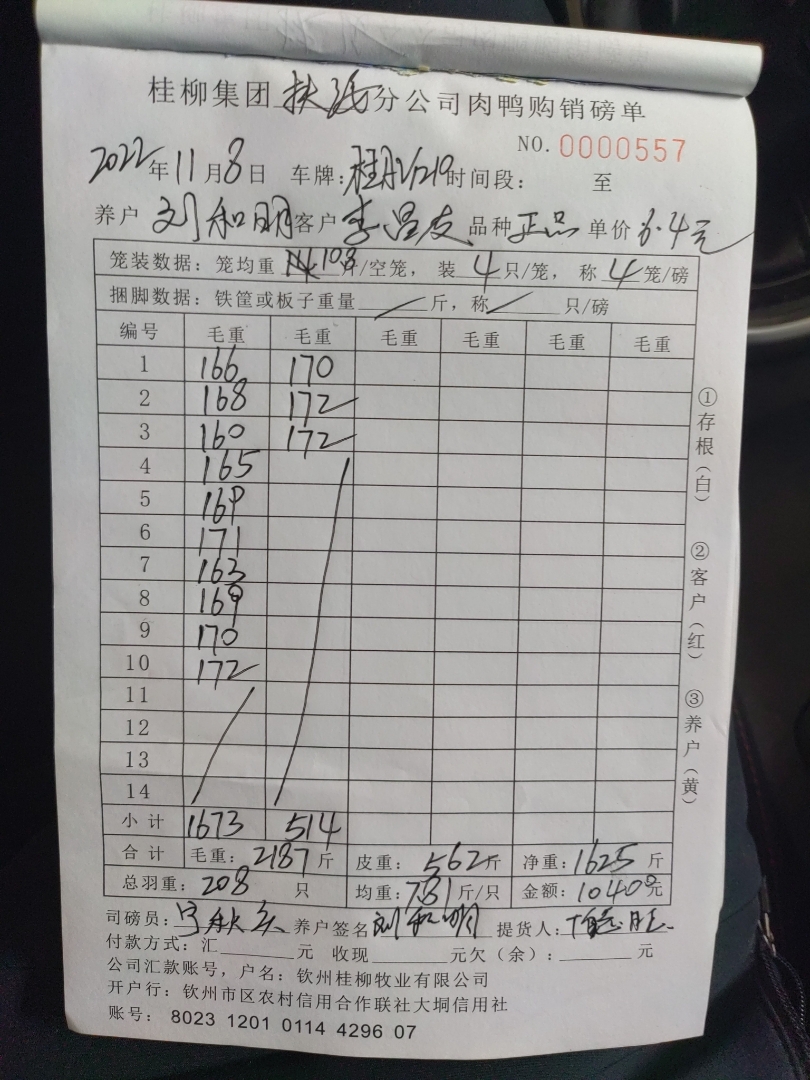 桂柳集团 扶 分公司肉鸭购销磅单
NO. 0000557
2022年11月8日 车牌: 时间段: 至
养户 刘和明 客户 李昌友 品种 正品 单价 6.4元
笼装数据: 笼均重 10.8 斤/空笼, 装 4 只/笼, 称 4 笼/磅
捆脚数据: 铁筐或板子重量 斤, 称 只/磅
编号 毛重 毛重 毛重 毛重 毛重 毛重
1 166 170
2 168 172
3 160 172
4 165
5 169
6 171
7 163
8 169
9 170
10 172
11
12
13
14
小计 1673 514
合计 毛重: 2187斤 皮重: 562斤 净重: 1625斤
总羽重: 208 只 均重: 7.81斤/只 金额: 10400元
司磅员: 养户签名 刘和明 提货人:
付款方式: 汇 元 收现 元欠(余): 元
公司汇款账号, 户名: 钦州桂柳牧业有限公司
开户行: 钦州市区农村信用合作联社大垌信用社
账号: 8023 1201 0114 4296 07
①存根(白)
②客户(红)
③养户(黄)